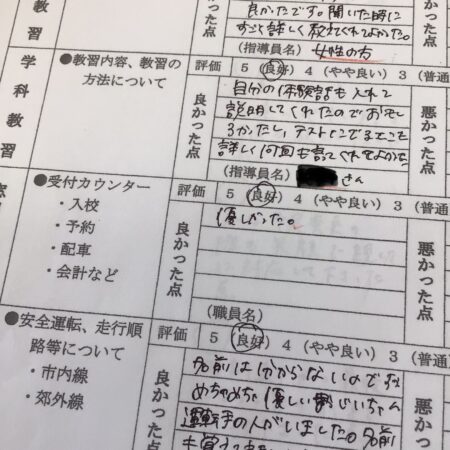 教習
良かった点
良かったです。聞いた時に
すごく詳しく教えてくれてよかった。
(指導員名) 女性の方
学科教習
●教習内容、教習の
方法について
評価 5 (良好) 4 (やや良い) 3 (普通
良かった点
自分の体験談も入れて
説明してくれたのでおもし
ろかったし、テストにでるところも
詳しく何回も言ってくれてよかった
(指導員名) さん
悪かった点
●受付カウンター
・入校
・予約
・配車
・会計など
評価 5 (良好) 4 (やや良い) 3 (普通
良かった点
優しかった。
(職員名)
悪かった点
●安全運転、走行順
路等について
・市内線
・郊外線
評価 5 (良好) 4 (やや良い) 3 (普通)
良かった点
名前は分からないのですが
めちゃめちゃ優しいじいちゃん
運転手の人がいました。名前
悪かった点